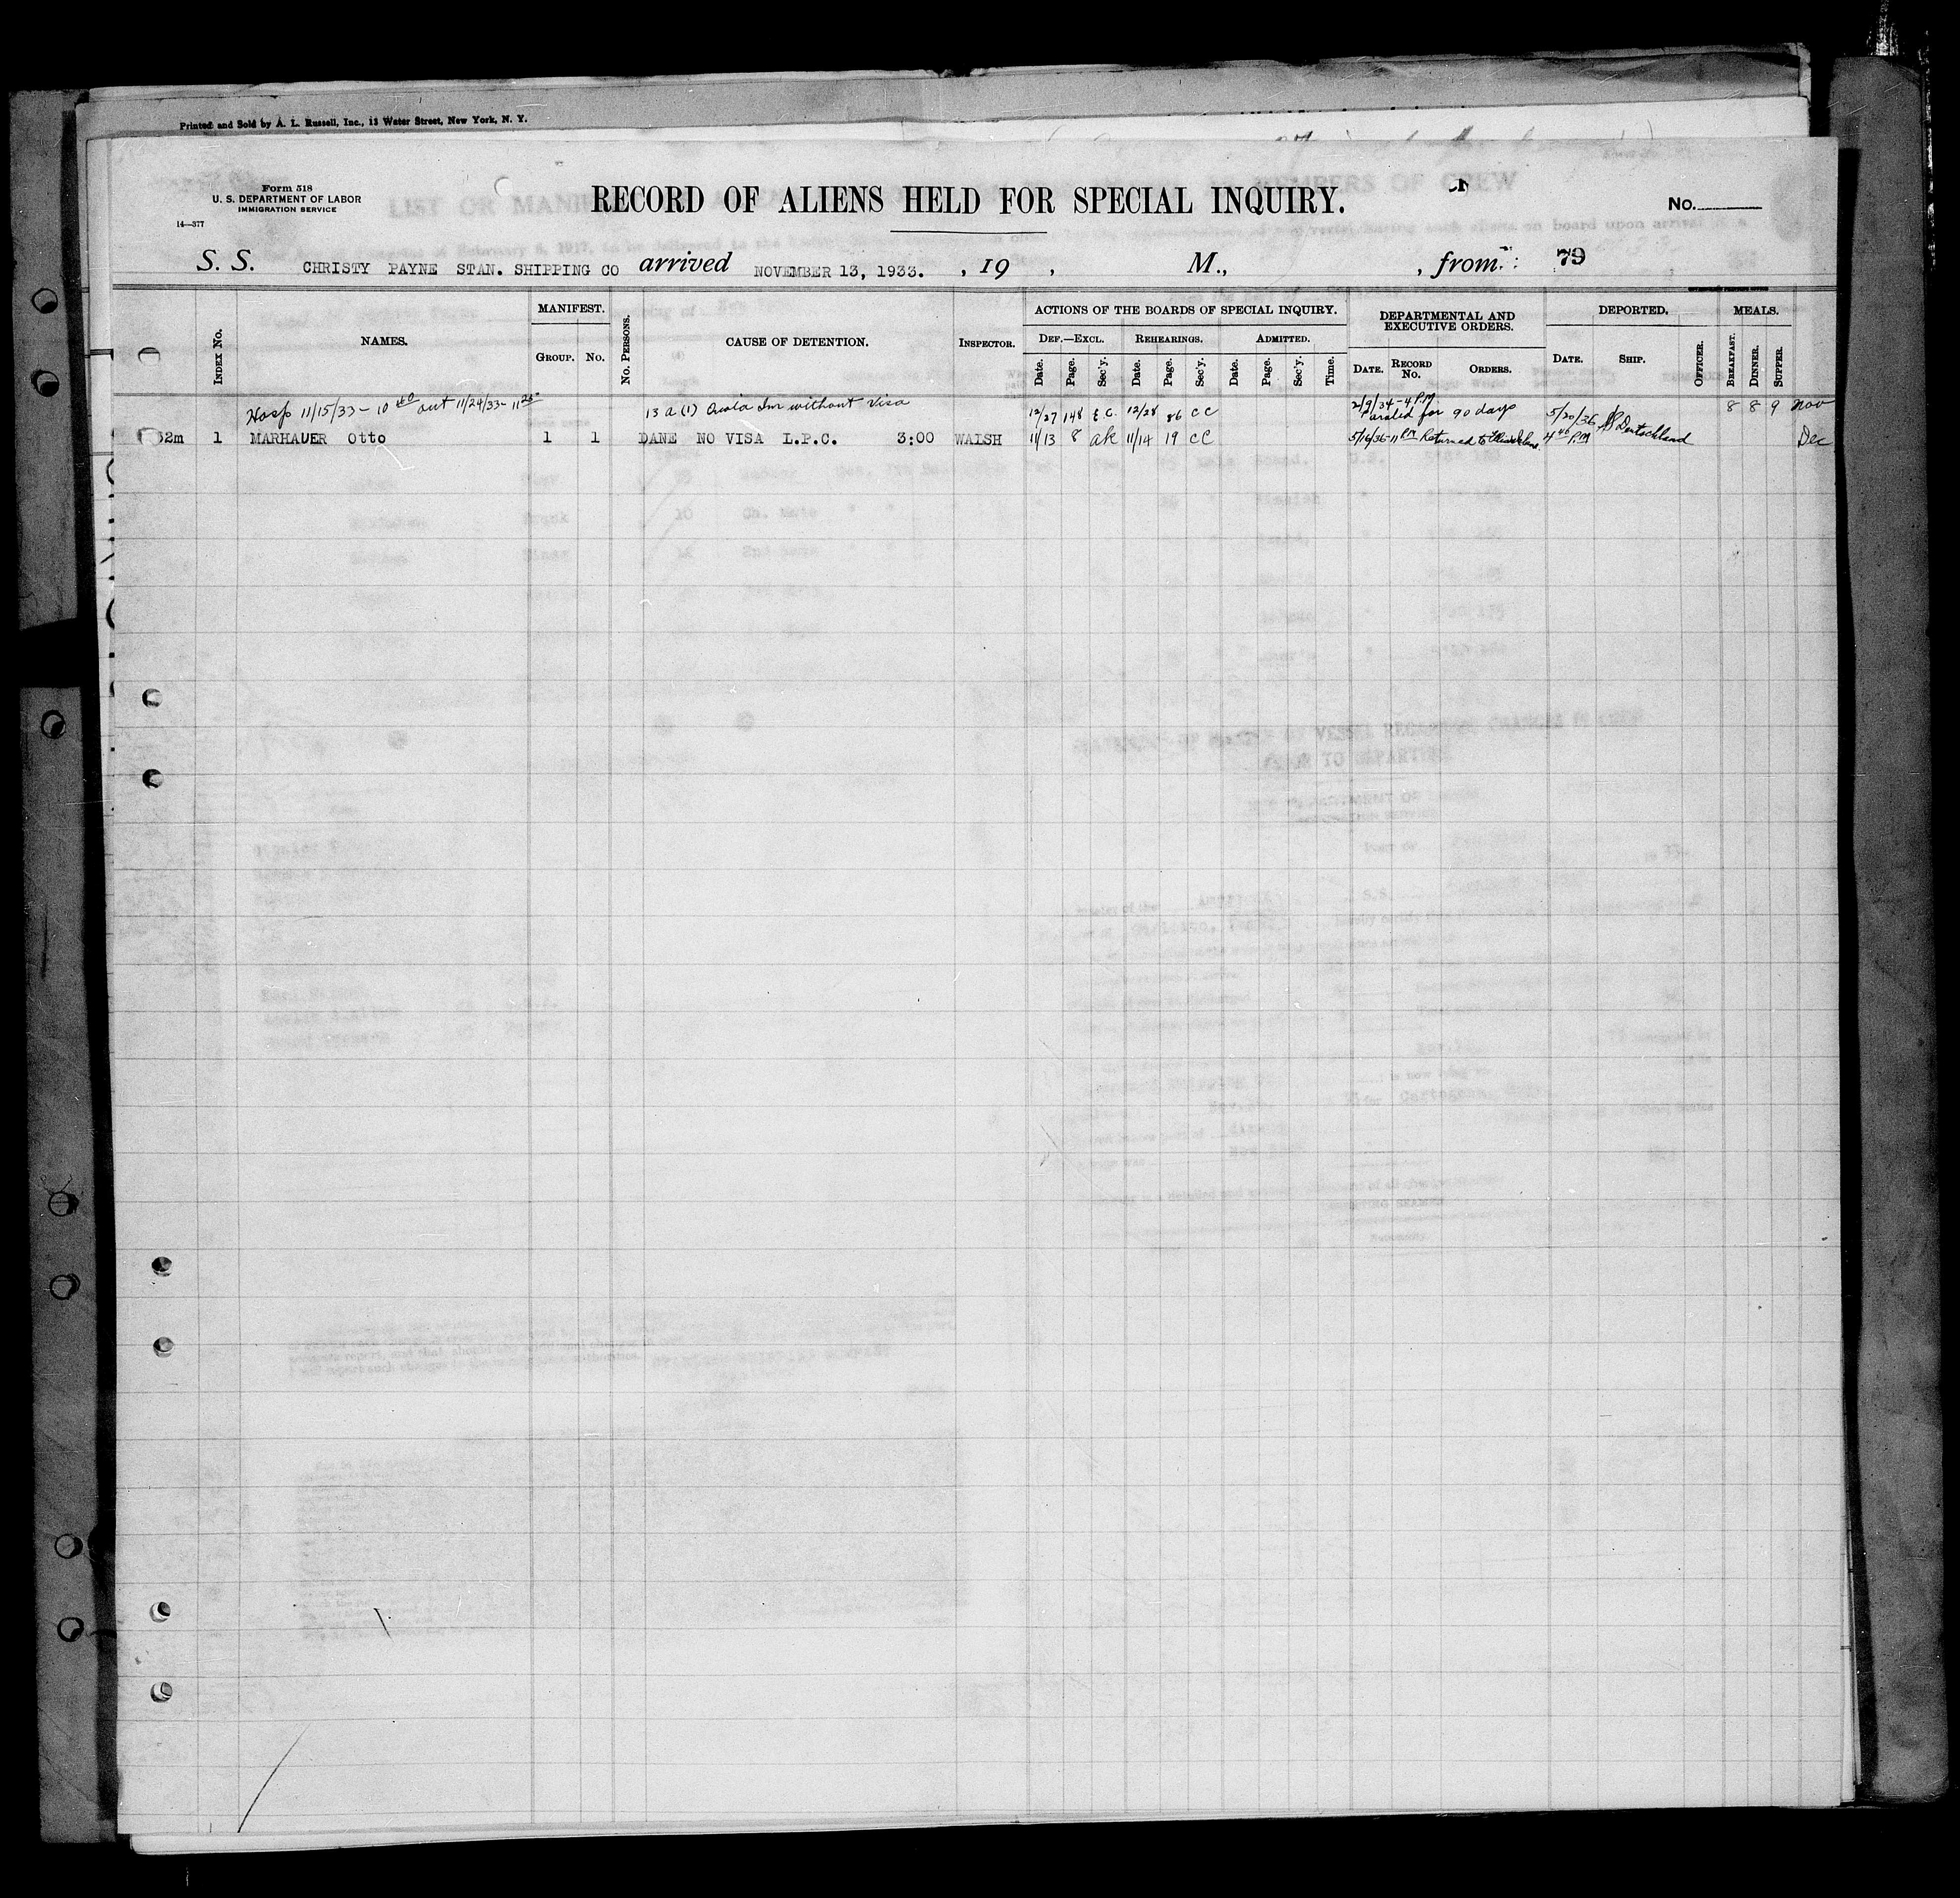 Printed and Sold by A. L. Russell, Inc., 13 Water Street, New York, N. Y.
Form 518
U. S. DEPARTMENT OF LABOR
IMMIGRATION SERVICE
14—377
RECORD OF ALIENS HELD FOR SPECIAL INQUIRY.
No.
S. S. CHRISTY PAYNE STAN. SHIPPING CO arrived NOVEMBER 13, 1933. , 19 , M., , from 79
INDEX NO.
NAMES.
MANIFEST.
GROUP. NO.
NO. PERSONS.
CAUSE OF DETENTION.
INSPECTOR.
ACTIONS OF THE BOARDS OF SPECIAL INQUIRY.
DEF.—EXCL. REHEARINGS. ADMITTED.
Date. Page. Sec'y. Date. Page. Sec'y. Date. Page. Sec'y. Time.
DEPARTMENTAL AND
EXECUTIVE ORDERS.
DATE. RECORD NO. ORDERS.
DEPORTED.
DATE. SHIP. OFFICER.
MEALS.
BREAKFAST. DINNER. SUPPER.
Hosp 11/15/33 - 10 40 out 11/24/33 - 11 13 a (1) Imm without Visa 12/27 148 E.C. 12/28 86 CC 2/9/34 - 4 P.M. Paroled for 90 days 5/20/36 SS Deutschland 8 8 9 Nov
32m 1 MARHAUER Otto 1 1 DANE NO VISA L.P.C. 3:00 WALSH 11/13 8 ak 11/14 19 CC 5/16/36 - 11 PM Returned to 4 40 PM Dec